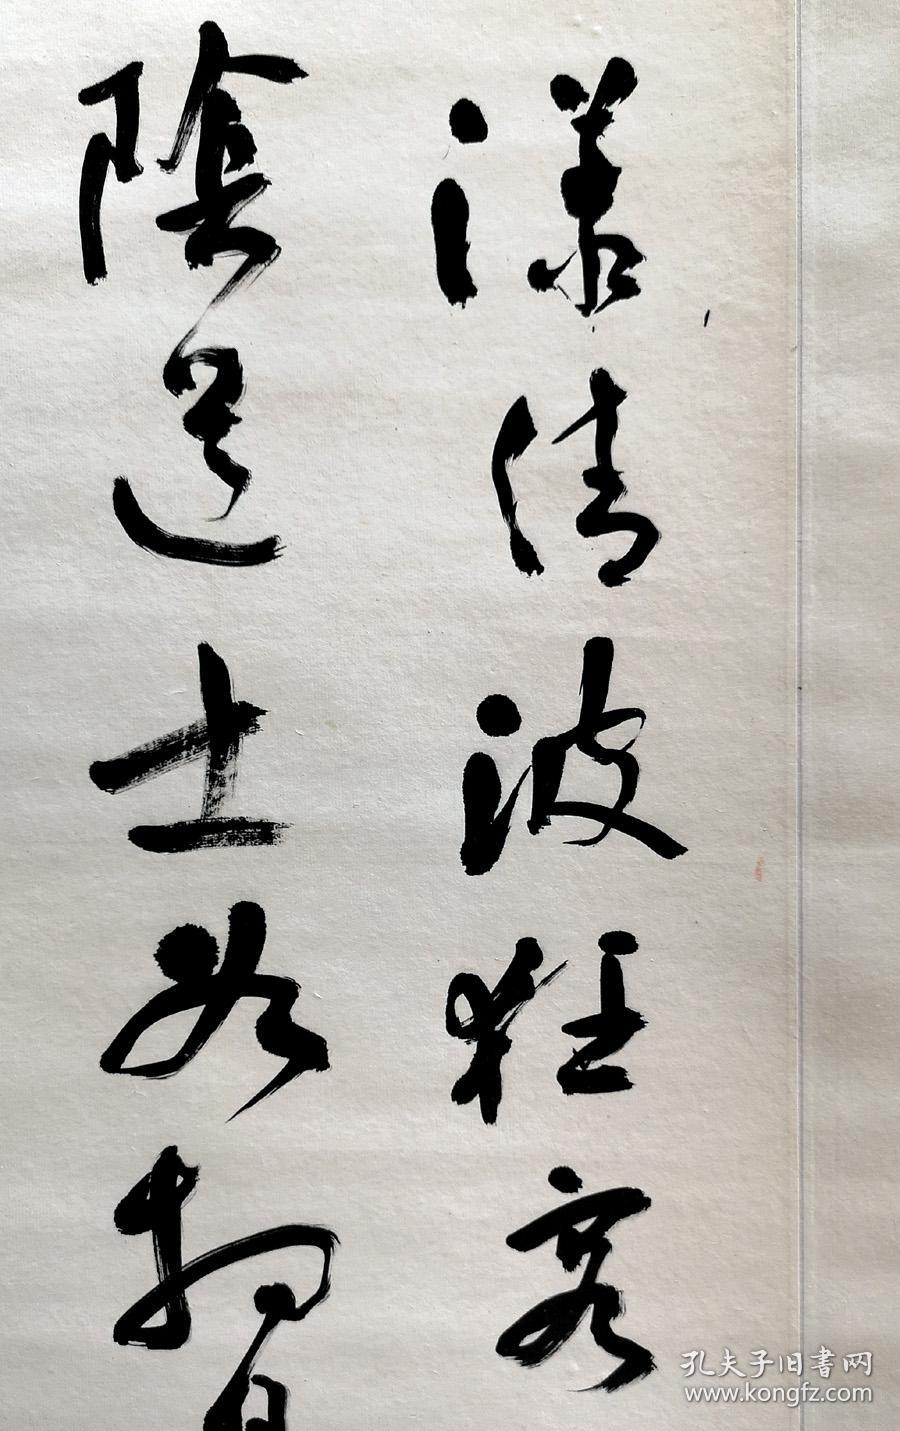 漾清波狂客
陰道士如相
孔夫子旧书网
www.kongfz.com